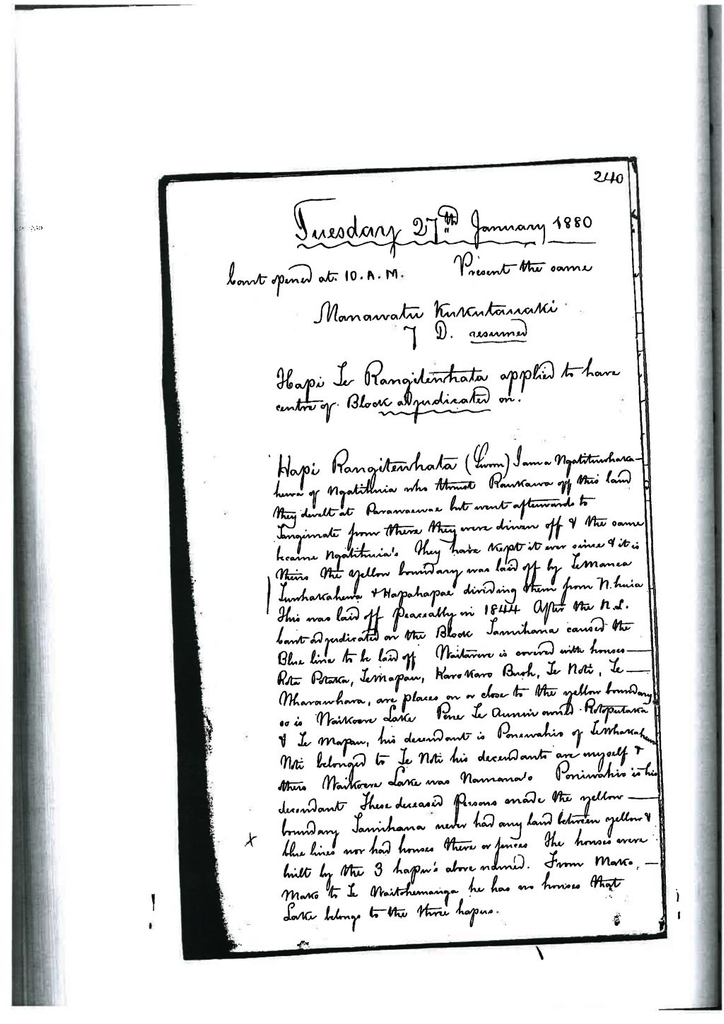 240
Tuesday 27th January 1880
Court opened at 10. A. M. Present the same
Manawatu Kukutauaki
7 D. resumed
Hapi Te Rangitewhata applied to have
centre of Block adjudicated on.
Hapi Rangitewhata (Sworn) I am a Ngatituwhaka-
hewa of Ngatihuia who thrust Raukawa off this land
they dwelt at but went afterwards to
from there they were driven off & the same
became Ngatihuia's They have kept it ever since & it is
theirs The yellow boundary was laid off by Te Manea
Tuwhakahewa & Hapahapai dividing them from N. huia
This was laid off peaceably in 1844 After the N. L.
Court adjudicated on the Block Tamihana caused the
Blue line to be laid off Waitarere is covered with houses
Roto Potaka, Te Mapau, Karo Karo Bush, Te Noti, Te
Wharawhara, are places on or close to the yellow boundary
so is Waikoere Lake Pene Te owned Rotoputaka
& Te Mapau, his descendant is Ponewahis of
Noti belonged to Te Noti his decendants are myself &
others Waikoere Lake was Namana's Poniwahis is his
decendant These deceased Persons made the yellow
boundary Tamihana never had any land between yellow &
X blue lines nor had houses there or fences The houses were
built by the 3 hapu's above named. From Mako,
Mako to Te he has no houses that
Lake belongs to the three hapus.